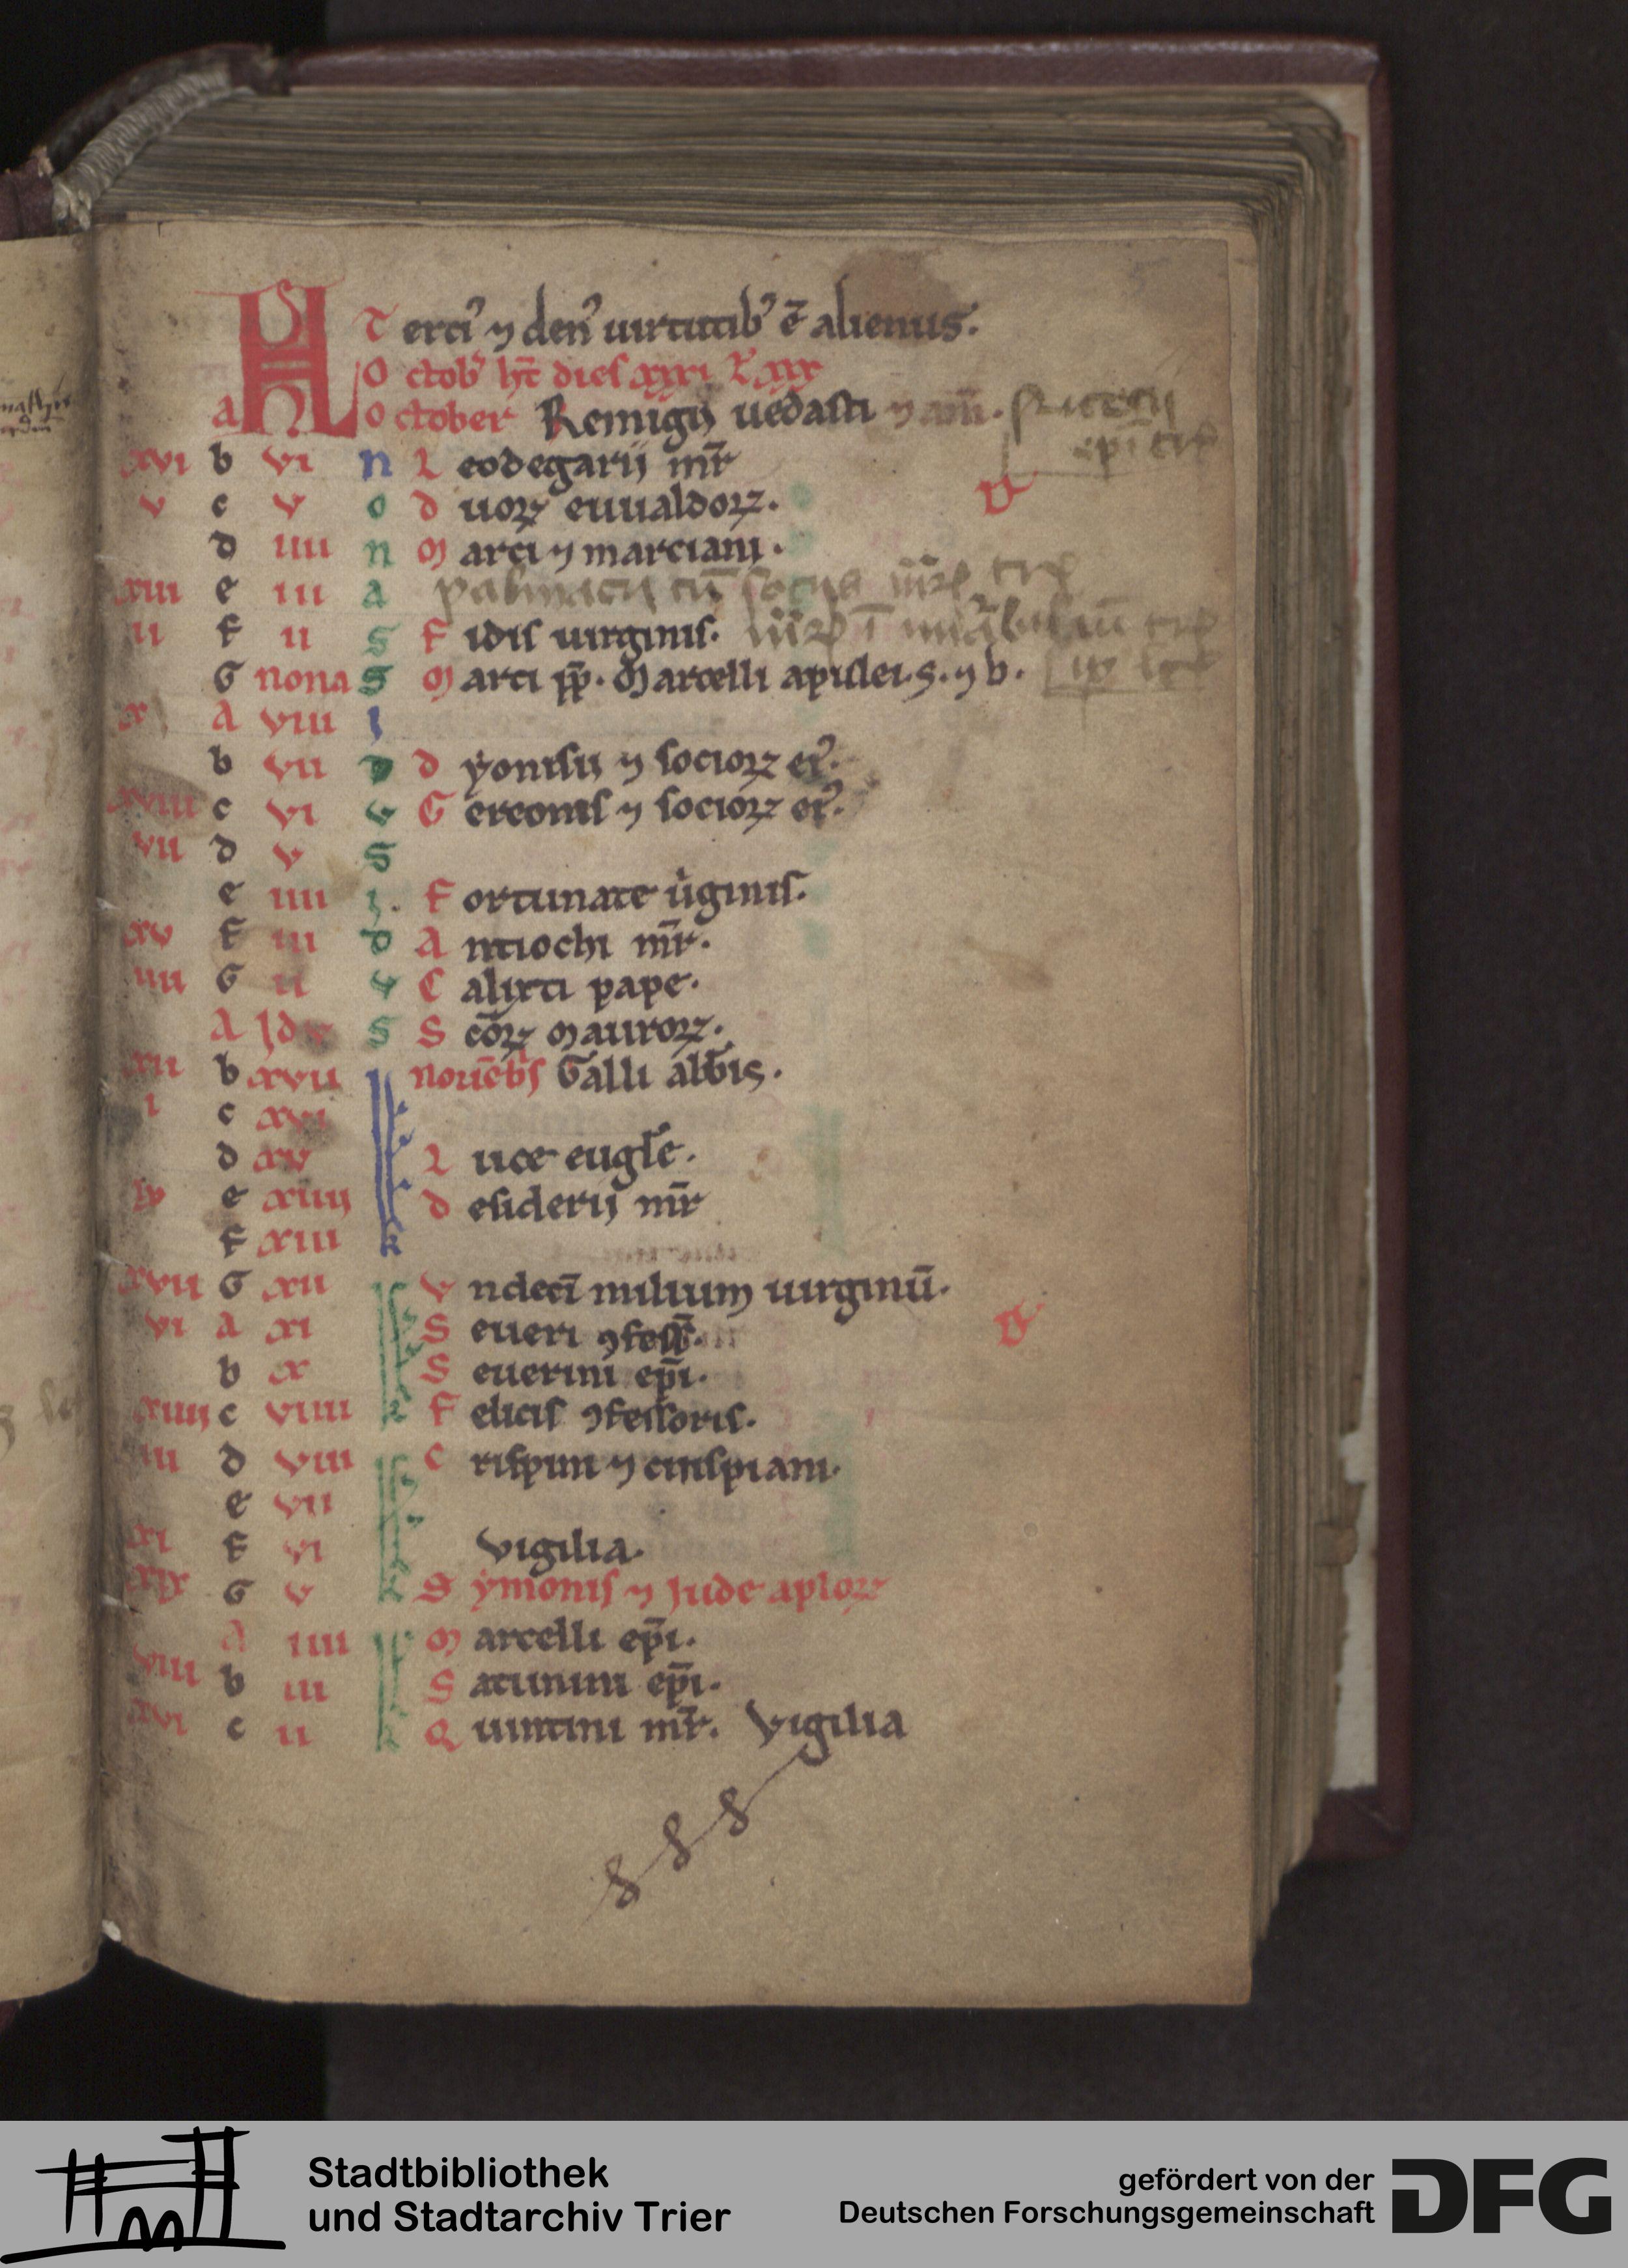 KL Terci᷒ ⁊ den᷒ uirtutib᷒ ē alienus.
Octob᷒ ht̄ dies xxxi L᷒ xxx
a October Remigij uedasti ⁊ am̄.
epi trē
xvi b vi n Leodegarij mr̄
v c v o duoꝝ euualdoꝝ.
d iiii n Marci ⁊ marciani.
xiii e iii a palmacii cū socijs mr̄ꝝ trē
ii F ii s Fidis uirginis. mr̄ꝝ trē
G nona s Marci pp̄. Marcelli apulei. s. ⁊ b.
x A viii i
b vii d dẏonisii ⁊ socioꝝ ei᷒.
xviii c vi v Gereonis ⁊ socioꝝ ei᷒.
vii d v s
e iiii i. Fortunate u̇ginis.
xv F iii d Antiochi mr̄.
iiii G ii v Calixti pape.
A Jdv s Scōꝝ Mauroꝝ.
xii b xvii Nouēbs̄ Galli abb̄is.
i c xvi
d xv Luce eugl̄e.
ix e xiiii desiderij mr̄
F xiii k
xvii G xii Vndecī milium uirginū.
vi a xi Seueri ꝯfess̄.
b x Seuerini ep̄i.
xiiii c viiii k Felicis ꝯfessoris.
iii d viii Crispini ⁊ crispiani.
e vii
xi F vi Vigilia.
xix G v k Sẏmonis ⁊ Jude aploꝝ
A iiii Marcelli ep̄i.
viii b iii Saturnini ep̄i.
xvi c ii k Quintini mr̄. Vigilia
Stadtbibliothek
und Stadtarchiv Trier
gefördert von der
Deutschen Forschungsgemeinschaft
DFG